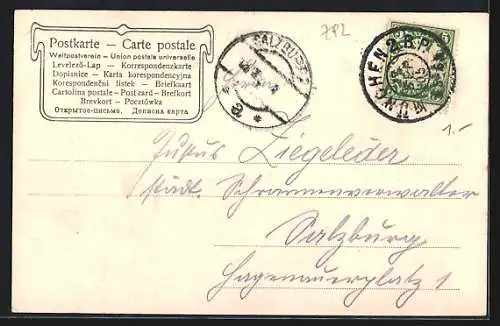 Postkarte – Carte postale
Weltpostverein – Union postale universelle
Levelező-Lap – Korrespondenzkarte
Dopisnice - Karta korespondencyjna
Korespondenční listek – Briefkaart
Cartolina postale – Post card – Brefkort
Brevkort – Pocztówka
Открытое-письмо. Дописна карта
782
SALZBURG 2
a
MÜNCHEN 2 B.P.
5
1.–
Ziegeleder
städt. Schrannenverwalter
Salzburg
Hagenauerplatz 1